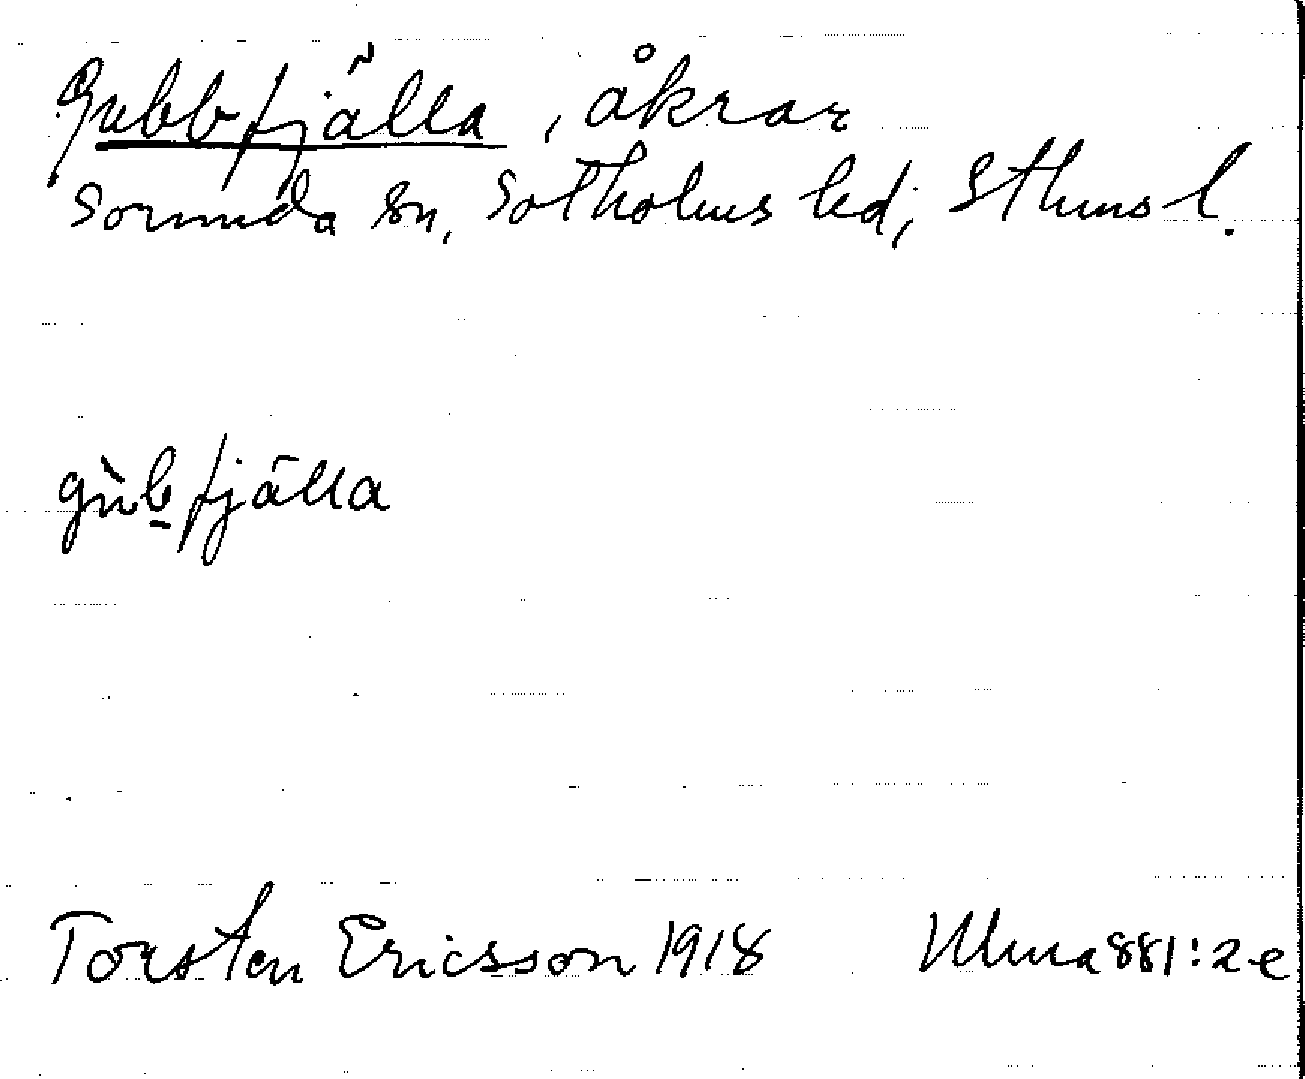 Gubbfjälla, åkrar
Sorunda sn, Sotholms hd, Sthms l.
gùbfjälla
Torsten Ericsson 1918 Ulma 881:2 e